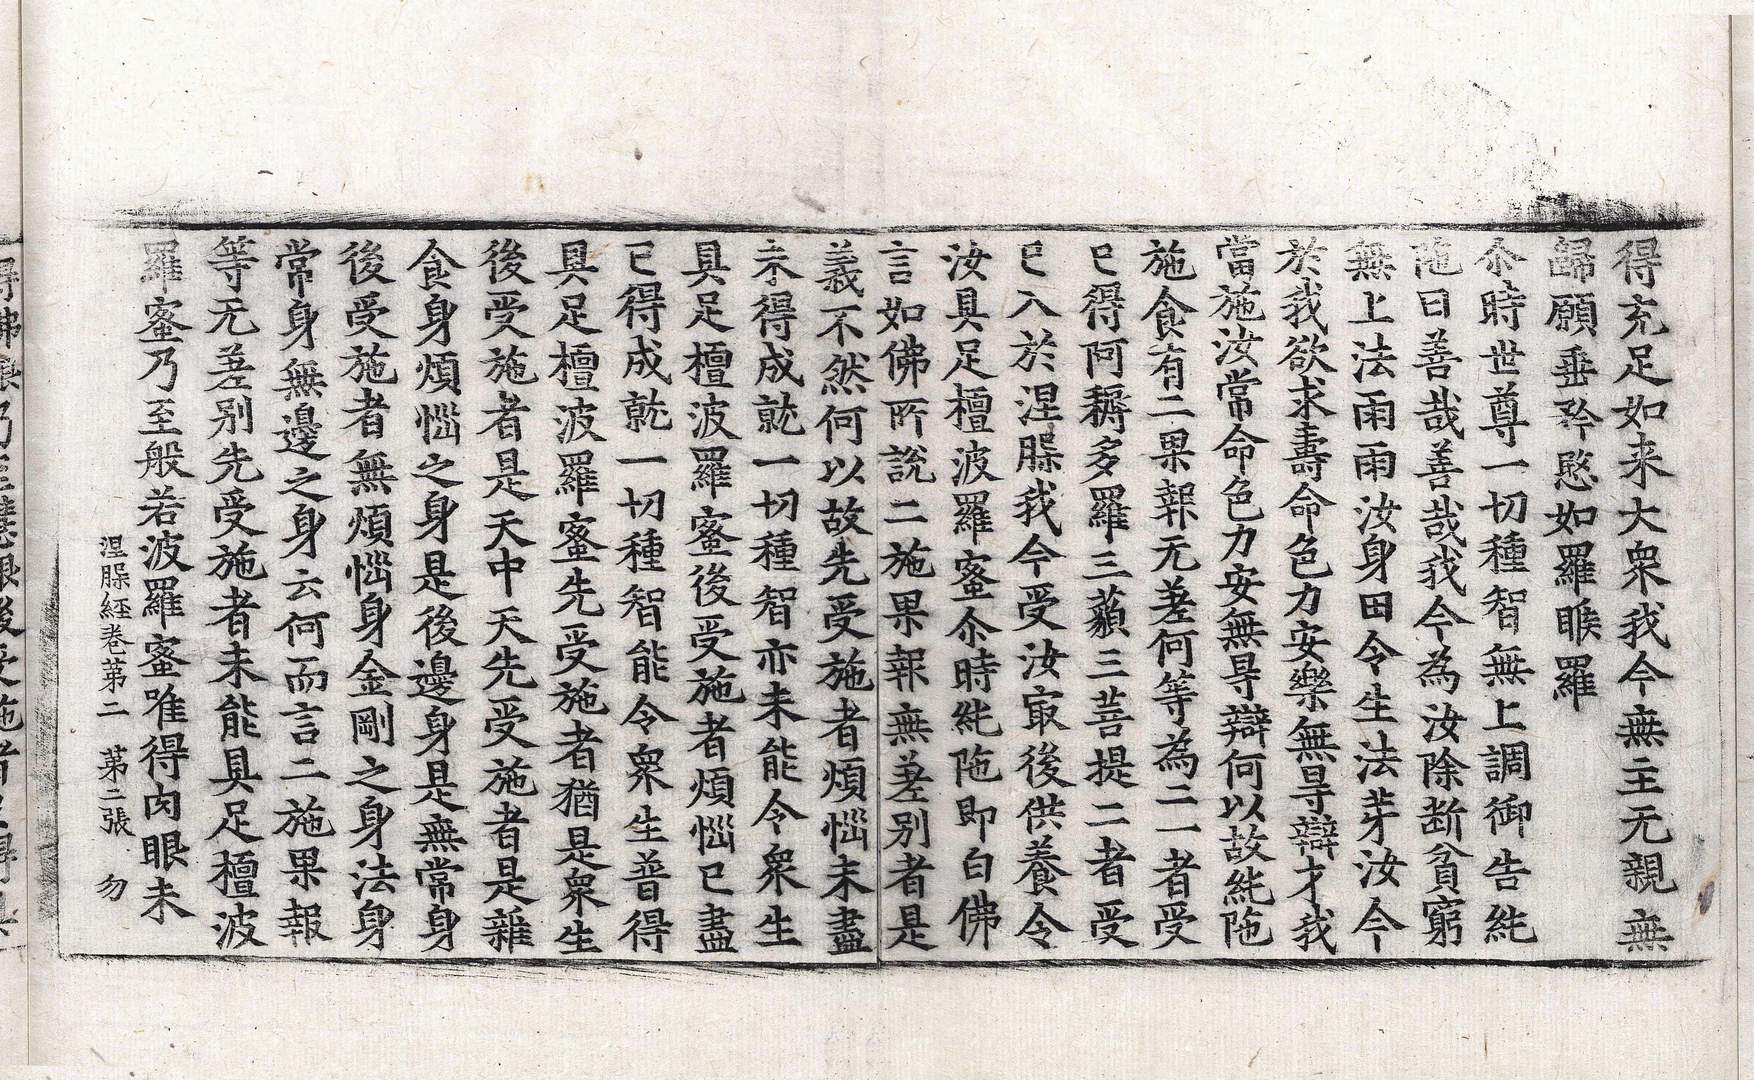 得充足如来大衆我今無主无親無
歸願垂矜愍如羅睺羅
尒時世尊一切種智無上調御告純
陁曰善哉善哉我今為汝除断貧窮
無上法雨雨汝身田令生法芽汝今
於我欲求壽命色力安樂無㝵辯才我
當施汝常命色力安無㝵辯何以故純陁
施食有二果報无差何等為二一者受
已得阿耨多羅三藐三菩提二者受
已入於涅槃我今受汝㝡後供養令
汝具足檀波羅蜜尒時純陁即白佛
言如佛所說二施果報無差别者是
義不然何以故先受施者煩惱未盡
未得成就一切種智亦未能令衆生
具足檀波羅蜜後受施者煩惱已盡
已得成就一切種智能令衆生普得
具足檀波羅蜜先受施者猶是衆生
後受施者是天中天先受施者是雜
食身煩惱之身是後邊身是無常身
後受施者無煩惱身金剛之身法身
常身無邊之身云何而言二施果報
等无差别先受施者未能具足檀波
羅蜜乃至般若波羅蜜唯得肉眼未
涅槃經卷第二 第二張 勿